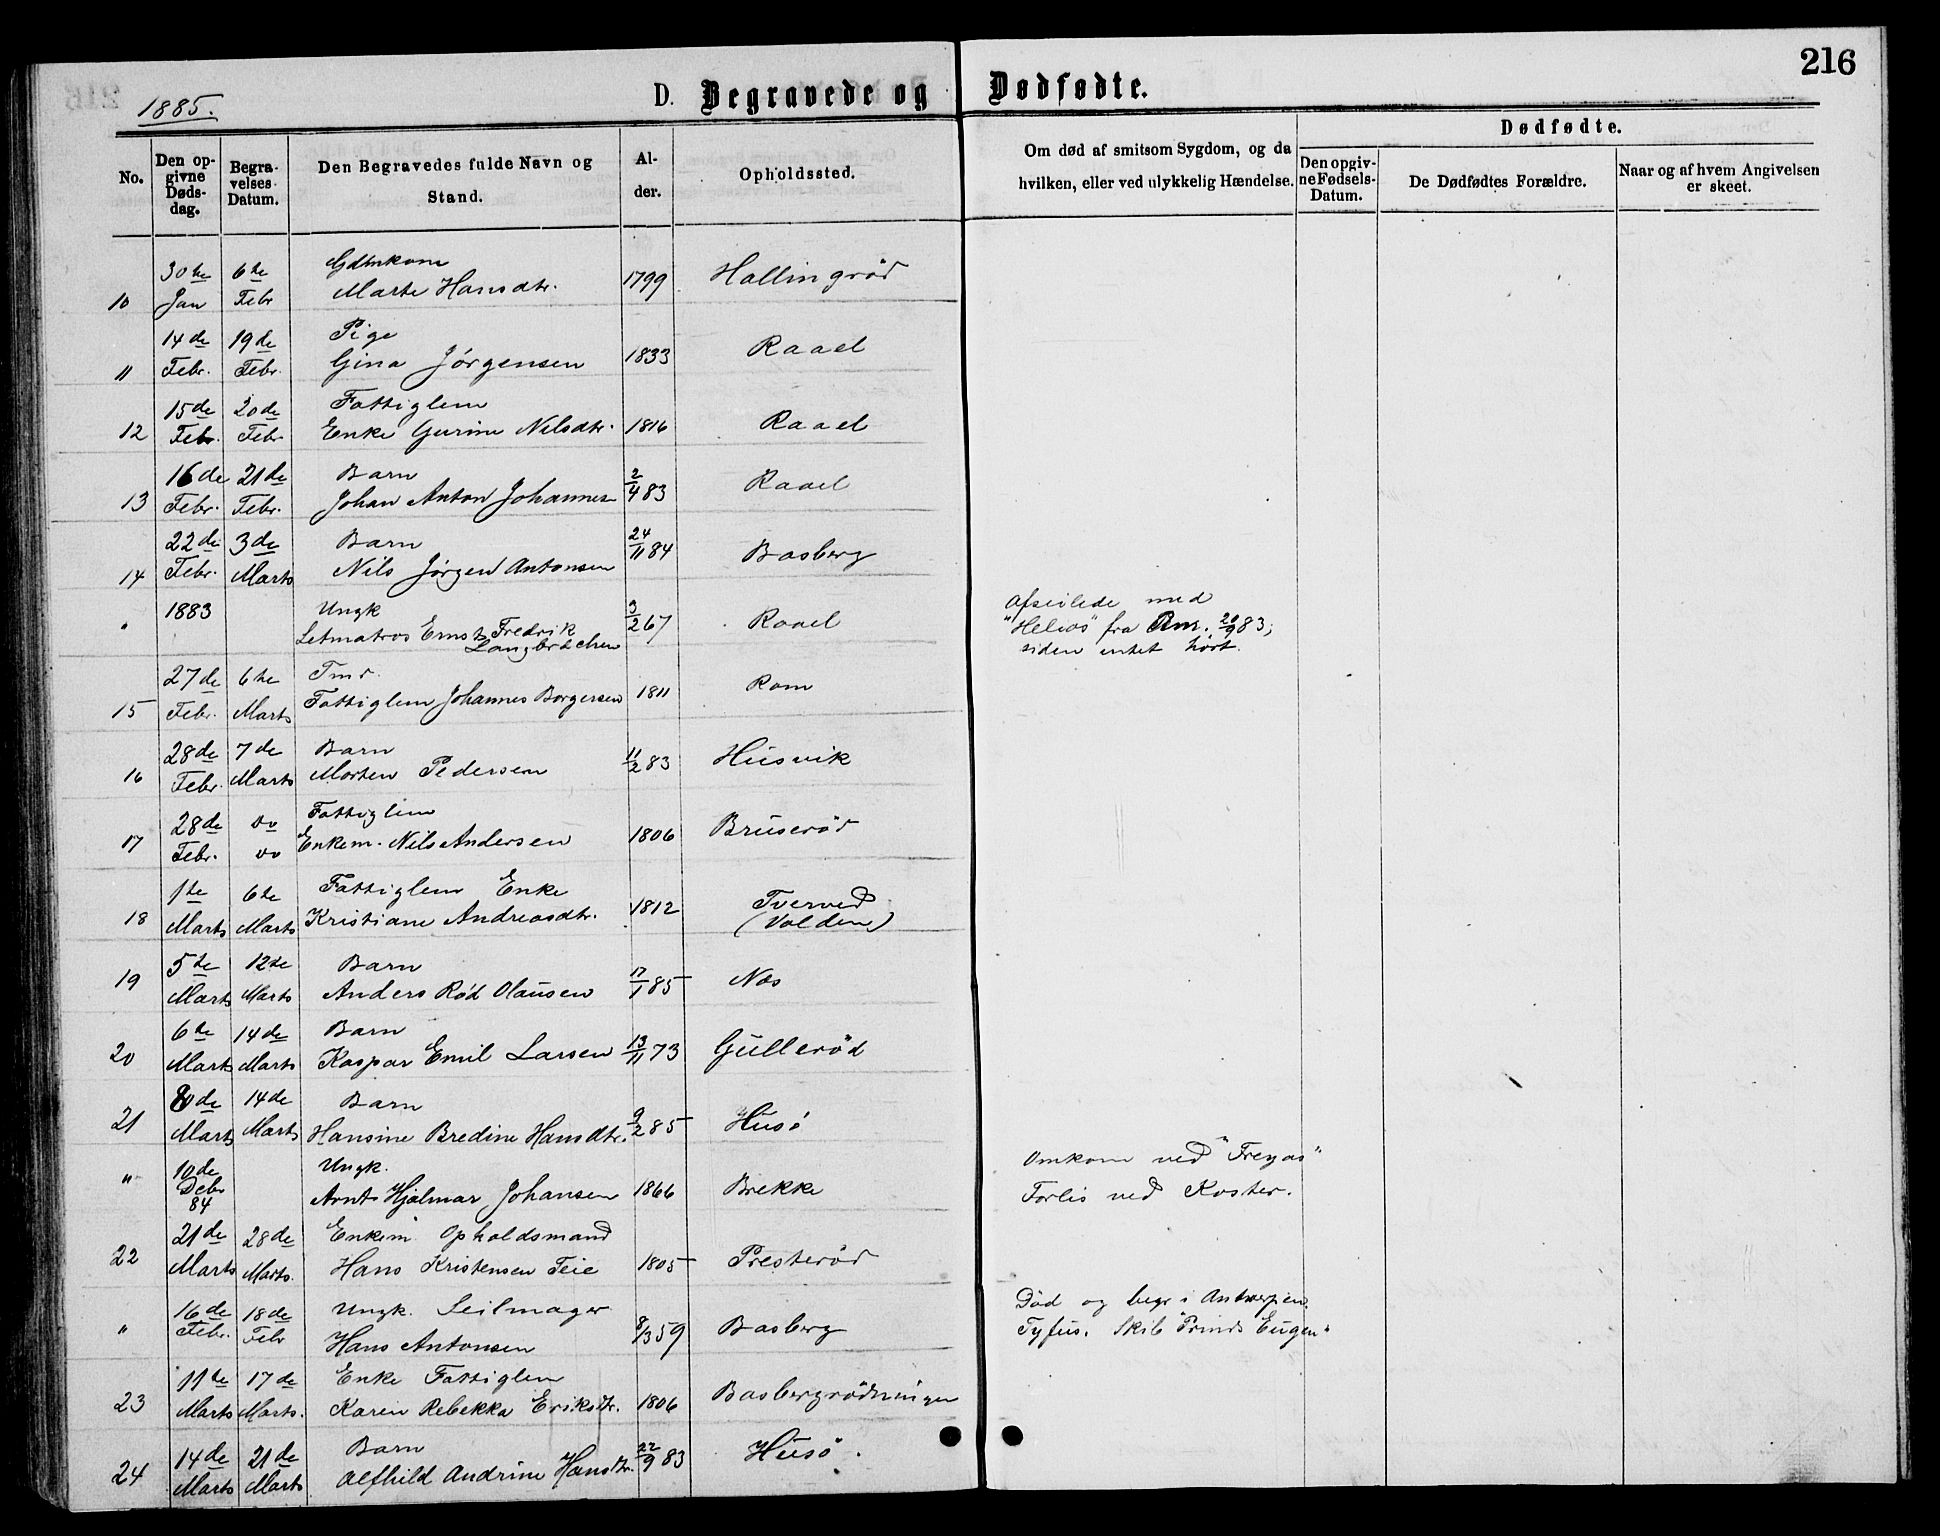 216
1885.
D. Begravede og Dødfødte.
No.
Den opgivne Dødsdag.
Begravelses Datum.
Den Begravedes fulde Navn og Stand.
Alder.
Opholdssted.
Om død af smitsom Sygdom, og da hvilken, eller ved ulykkelig Hændelse.
Dødfødte.
Den opgivne Fødsels-Datum.
De Dødfødtes Forældre.
Naar og af hvem Angivelsen er skeet.
10 30te Jan 6te Febr Gdmkone
Marte Hansdtr. 1799 Hallingrød
11 14de Febr. 19de Febr. Pige
Gina Jørgensen 1833 Raael
12 15de Febr. 20de Febr Fattiglem
Enke Gurine Nilsdtr. 1816 Raael
13 16de Febr. 21de Febr. Barn
Johan Anton Johannesen 2/4 83 Raael
14 22de Febr. 3de Marts Barn
Nils Jørgen Antonsen 24/11 84 Basberg
" 1883 Ungk
Letmatros Ernst Fredrik 3/2 67 Raael
Afseilede med
"Helios" fra 20/9 83;
siden intet hört.
15 27de Febr. 6te Marts Tmd.
Fattiglem Johannes Borgersen 1811 Rom
16 28de Febr. 7de Marts Barn
Morten Pedersen 11/2 83 Husvik
17 28de Febr. do do Fattiglem
Enkem. Nils Andersen 1806 Bruserød
18 1te Marts 6te Marts Fattiglem Enke
Kristiane Andreasdtr. 1812 Tverved
(Volden)
19 5te Marts 12te Marts Barn
Anders Rød Olausen 17/1 85 Nes
20 6te Marts 14de Marts Barn
Kaspar Emil Larsen 13/11 73 Gullerød
21 8de Marts 14de Marts Barn
Hansine Bredine Hansdtr. 9/2 85 Husö
" 10de Debr 84 Ungk.
Arnt Hjalmar Johansen 1866 Brekke
Omkom ved "Freyas"
Forlis ved Koster.
22 21de Marts 28de Marts. Enkem Opholdsmand
Hans Kristensen Teie 1805 Presterød
" 16de Febr. 18de Febr Ungk. Seilmager
Hans Antonsen 8/3 59 Basberg
Död og begr i Antwerpen.
Tyfus. Skib "Prinds Eugen"
23 11te Marts 17de Marts. Enke Fattiglem
Karen Rebekka Eriksdtr. 1806 Basbergrödningen
24 14de Marts 21de Marts Barn
Alfhild Andrine Hansdtr. 22/9 83 Husö.